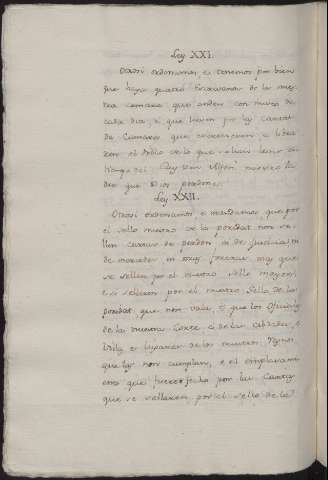 Ley XXI.
Otrosi ordenamos, e tenemos por bien
que haya quatro Escrivanos de la nues-
tra camara que anden con nusco de
cada dia, e que lieven por las cartas
de Camara que
den el doblo de lo que solian levar en
tiempo del Rey Don Alfon nuestro Pa-
dre que Dios perdone.
Ley XXII.
Otrosi ordenamos e mandamos que por
el sello nuestro de la poridat non se-
llen cartas de perdon, ni de Justicia, ni
de mercedes, ni otras foreras, mas que
se sellen por el nuestro sello mayor,
e si sellaren por el nuestro Sello de la
poridat que non vala, e que los Oficiales
de la nuestra Corte e de las Cibdades, e
Villas e Lugares de los nuestros Regnos,
que las non cumplan, e el emplazami-
ento que fuere fecho por las Cartas
que se sellaren por el sello de la